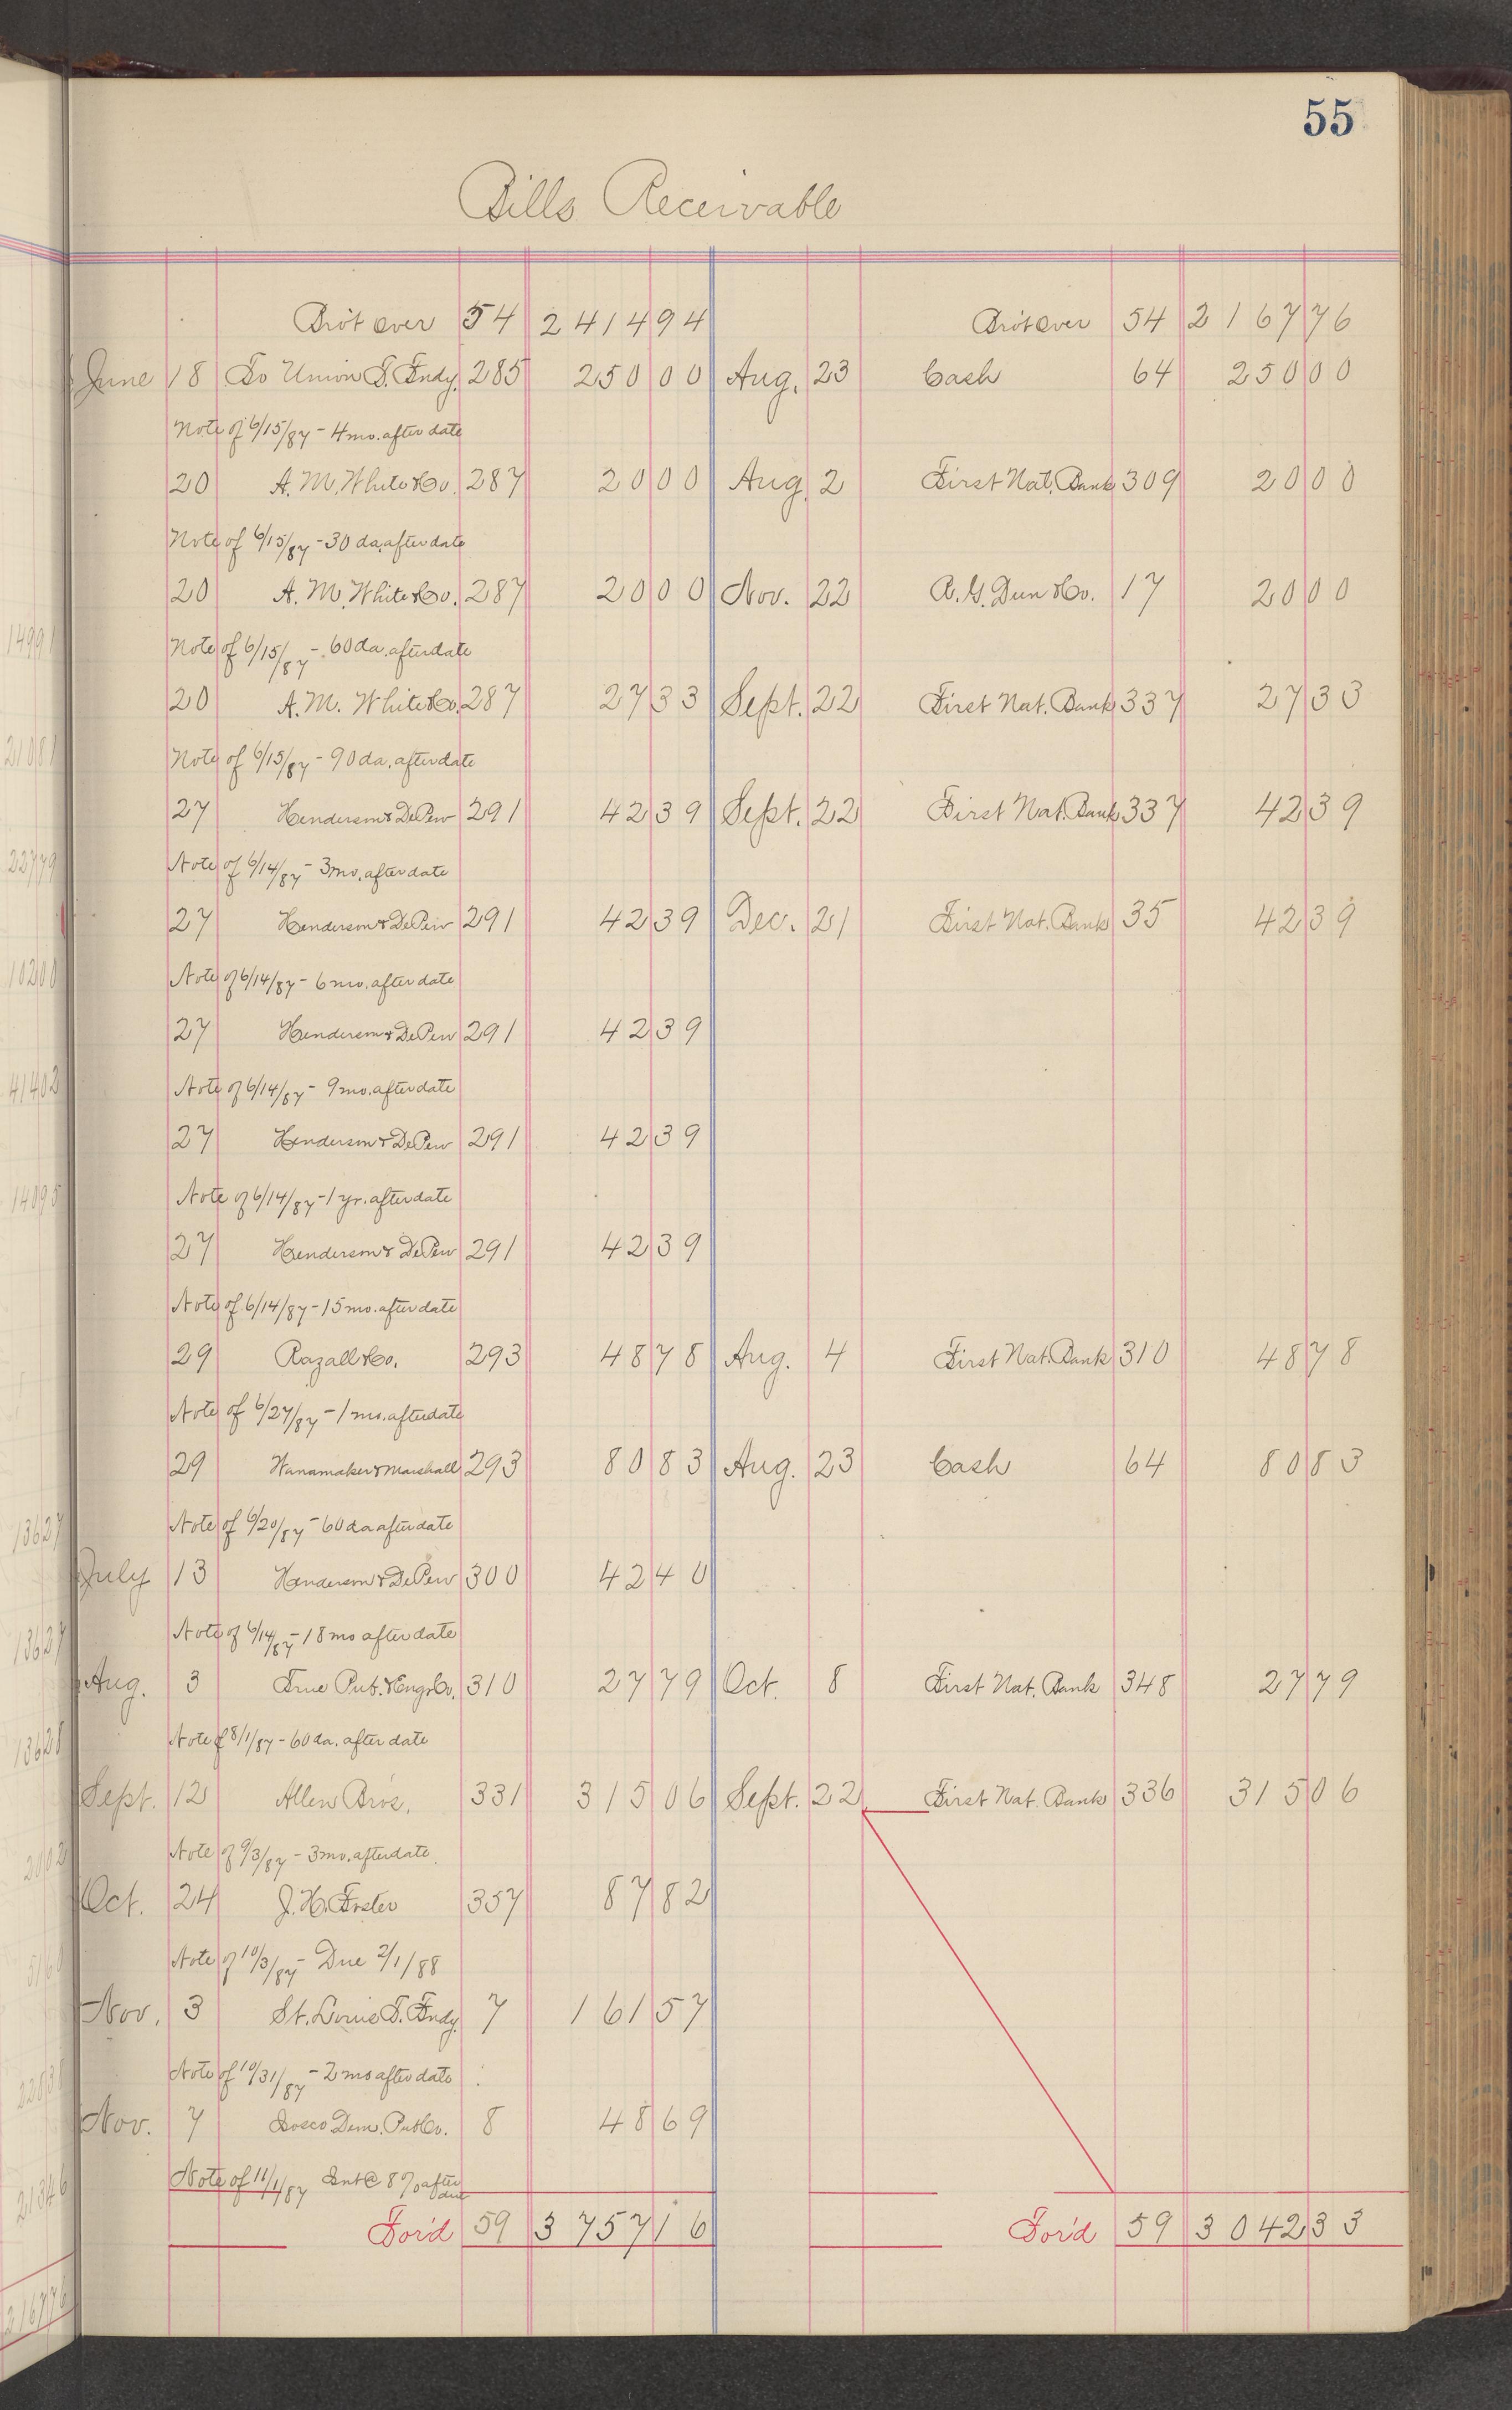 55
Bills Receivable
Bro't Over 54 2414 94 Bro't Over 54 2167 76
June 18 To Union S. Fndy. 285 250 00 Aug. 23 Cash 64 250 00
Note of 6/15/87 - 4 mo. after date
20 A. M. White & Co. 287 20 00 Aug. 2 First Nat. Bank 309 20 00
Note of 6/15/87 - 30 da. after date
20 A. M. White & Co. 287 20 00 Nov. 22 R. G. Dun & Co. 17 20 00
Note of 6/15/87 - 60 da. after date
20 A. M. White & Co. 287 27 33 Sept. 22 First Nat. Bank 337 27 33
Note of 6/15/87 - 90 da. after date
27 Henderson & DePew 291 42 39 Sept. 22 First Nat. Bank 337 42 39
Note of 6/14/87 - 3 mo. after date
27 Henderson & DePew 291 42 39 Dec. 21 First Nat. Bank 35 42 39
Note of 6/14/87 - 6 mo. after date
27 Henderson & DePew 291 42 39
Note of 6/14/87 - 9 mo. after date
27 Henderson & DePew 291 42 39
Note of 6/14/87 - 1 yr. after date
27 Henderson & DePew 291 42 39
Note of 6/14/87 - 15 mo. after date
29 Razall & Co. 293 48 78 Aug. 4 First Nat. Bank 310 48 78
Note of 6/27/87 - 1 mo. after date
29 Wanamaker & Marshall 293 80 83 Aug. 23 Cash 64 80 83
Note of 6/20/87 - 60 da after date
July 13 Henderson & DePew 300 42 40
Note of 6/14/87 - 18 mo after date
Aug. 3 True Pub. & Engr. Co. 310 27 79 Oct. 8 First Nat. Bank 348 27 79
Note of 8/1/87 - 60 da. after date
Sept. 12 Allen Bros. 331 315 06 Sept. 22 First Nat. Bank 336 315 06
Note of 9/3/87 - 3 mo. after date.
Oct. 24 J. H. Foster 357 87 82
Note of 10/3/87 - Due 2/1/88
Nov. 3 St. Louis T. Fndy. 7 161 57
Note of 10/31/87 - 2 mo after date
Nov. 7 Iosco Dem. Pub Co. 8 48 69
Note of 11/1/87 Int @ 8% after due
For'd 59 3757 16 For'd 59 3042 33